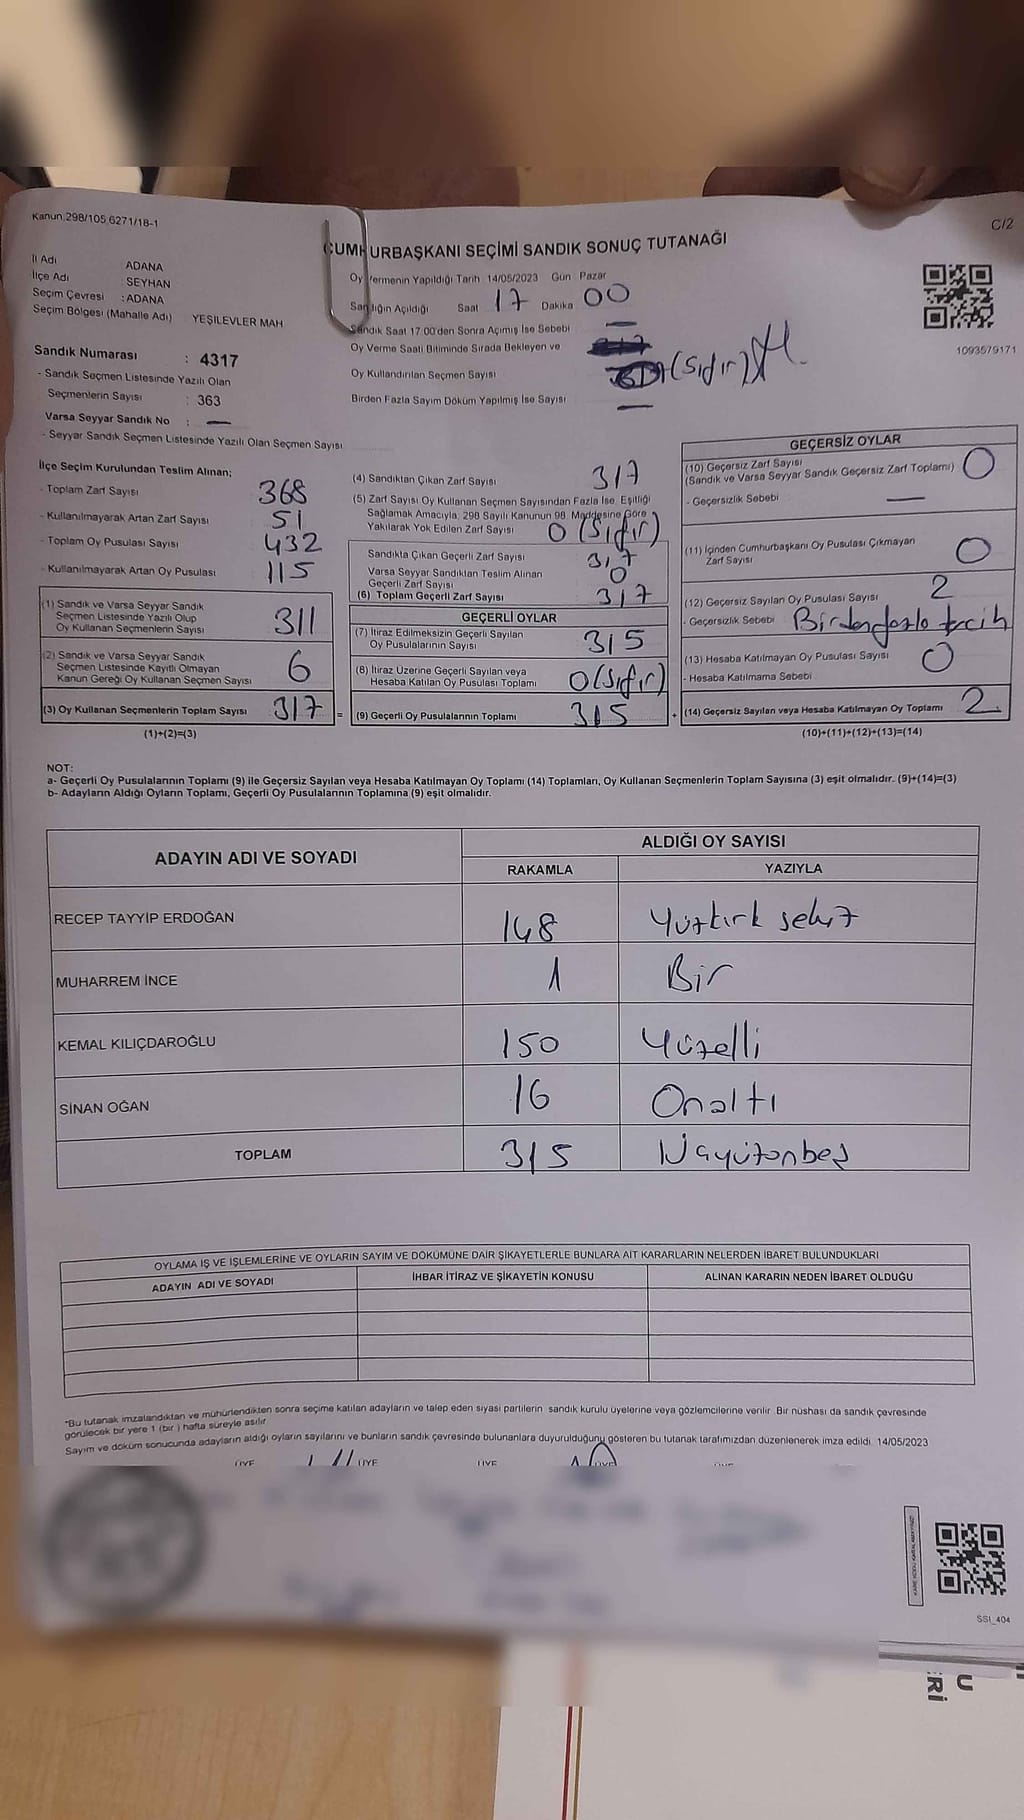 Kanun 298/105 6271/18-1
C/2
CUMHURBAŞKANI SEÇİMİ SANDIK SONUÇ TUTANAĞI
İl Adı ADANA
İlçe Adı : SEYHAN
Seçim Çevresi : ADANA
Seçim Bölgesi (Mahalle Adı) YEŞİLEVLER MAH
Oy Vermenin Yapıldığı Tarih 14/05/2023 Gün Pazar
Sandığın Açıldığı Saat 17 Dakika 00
Sandık Saat 17 00'den Sonra Açımış İse Sebebi —
Oy Verme Saati Bitiminde Sırada Bekleyen ve
Oy Kullandırılan Seçmen Sayısı (Sıfır)
Birden Fazla Sayım Döküm Yapılmış İse Sayısı —
1093579171
Sandık Numarası : 4317
- Sandık Seçmen Listesinde Yazılı Olan
Seçmenlerin Sayısı : 363
Varsa Seyyar Sandık No : —
- Seyyar Sandık Seçmen Listesinde Yazılı Olan Seçmen Sayısı
İlçe Seçim Kurulundan Teslim Alınan;
- Toplam Zarf Sayısı 368
- Kullanılmayarak Artan Zarf Sayısı 51
- Toplam Oy Pusulası Sayısı 432
- Kullanılmayarak Artan Oy Pusulası 115
(1) Sandık ve Varsa Seyyar Sandık
Seçmen Listesinde Yazılı Olup
Oy Kullanan Seçmenlerin Sayısı 311
(2) Sandık ve Varsa Seyyar Sandık
Seçmen Listesinde Kayıtlı Olmayan
Kanun Gereği Oy Kullanan Seçmen Sayısı 6
(3) Oy Kullanan Seçmenlerin Toplam Sayısı 317 =
(1)+(2)=(3)
(4) Sandıktan Çıkan Zarf Sayısı 317
(5) Zarf Sayısı Oy Kullanan Seçmen Sayısından Fazla İse, Eşitliği
Sağlamak Amacıyla, 298 Sayılı Kanunun 98. Maddesine Göre
Yakılarak Yok Edilen Zarf Sayısı 0 (Sıfır)
Sandıkta Çıkan Geçerli Zarf Sayısı 317
Varsa Seyyar Sandıktan Teslim Alınan
Geçerli Zarf Sayısı 0
(6) Toplam Geçerli Zarf Sayısı 317
GEÇERLİ OYLAR
(7) İtiraz Edilmeksizin Geçerli Sayılan
Oy Pusulalarının Sayısı 315
(8) İtiraz Üzerine Geçerli Sayılan veya
Hesaba Katılan Oy Pusulası Toplamı 0 (Sıfır)
(9) Geçerli Oy Pusulalarının Toplamı 315 +
GEÇERSİZ OYLAR
(10) Geçersiz Zarf Sayısı
(Sandık ve Varsa Seyyar Sandık Geçersiz Zarf Toplamı) 0
- Geçersizlik Sebebi —
(11) İçinden Cumhurbaşkanı Oy Pusulası Çıkmayan
Zarf Sayısı 0
(12) Geçersiz Sayılan Oy Pusulası Sayısı 2
- Geçersizlik Sebebi Birden fazla tercih
(13) Hesaba Katılmayan Oy Pusulası Sayısı 0
- Hesaba Katılmama Sebebi
(14) Geçersiz Sayılan veya Hesaba Katılmayan Oy Toplamı 2
(10)+(11)+(12)+(13)=(14)
NOT:
a- Geçerli Oy Pusulalarının Toplamı (9) ile Geçersiz Sayılan veya Hesaba Katılmayan Oy Toplamı (14) Toplamları, Oy Kullanan Seçmenlerin Toplam Sayısına (3) eşit olmalıdır. (9)+(14)=(3)
b- Adayların Aldığı Oyların Toplamı, Geçerli Oy Pusulalarının Toplamına (9) eşit olmalıdır.
ADAYIN ADI VE SOYADI ALDIĞI OY SAYISI
RAKAMLA YAZIYLA
RECEP TAYYİP ERDOĞAN 148 Yüzkırk sekiz
MUHARREM İNCE 1 Bir
KEMAL KILIÇDAROĞLU 150 Yüzelli
SİNAN OĞAN 16 Onaltı
TOPLAM 315 Üçyüzonbeş
OYLAMA İŞ VE İŞLEMLERİNE VE OYLARIN SAYIM VE DÖKÜMÜNE DAİR ŞİKAYETLERLE BUNLARA AİT KARARLARIN NELERDEN İBARET BULUNDUKLARI
ADAYIN ADI VE SOYADI İHBAR İTİRAZ VE ŞİKAYETİN KONUSU ALINAN KARARIN NEDEN İBARET OLDUĞU
*Bu tutanak imzalandıktan ve mühürlendikten sonra seçime katılan adayların ve talep eden siyasi partilerin sandık kurulu üyelerine veya gözlemcilerine verilir. Bir nüshası da sandık çevresinde
görülecek bir yere 1 (bir) hafta süreyle asılır
Sayım ve döküm sonucunda adayların aldığı oyların sayılarını ve bunların sandık çevresinde bulunanlara duyurulduğunu gösteren bu tutanak tarafımızdan düzenlenerek imza edildi. 14/05/2023
ÜYE ÜYE ÜYE ÜYE
SSI_404